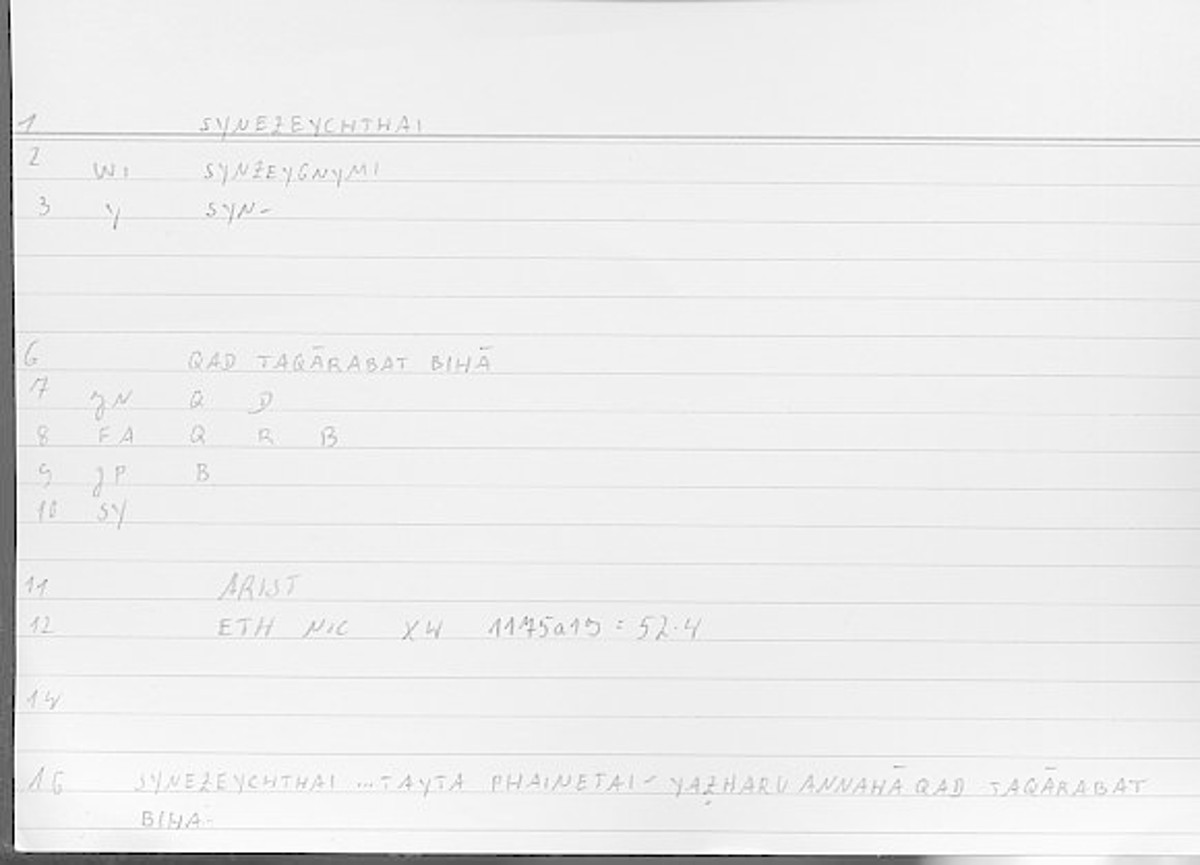 1 SYNEZEYCHTHAI
2 WI SYNZEYGNYMI
3 Y SYN-
6 QAD TAQĀRABAT BIHĀ
7 ZN Q D
8 FA Q R B
9 ZP B
10 SY
11 ARIST
12 ETH NIC X4 1175a19 = 52.4
14
16 SYNEZEYCHTHAI ... TAYTA PHAINETAI - YAẒHARU ANNAHĀ QAD TAQĀRABAT
BIHA.